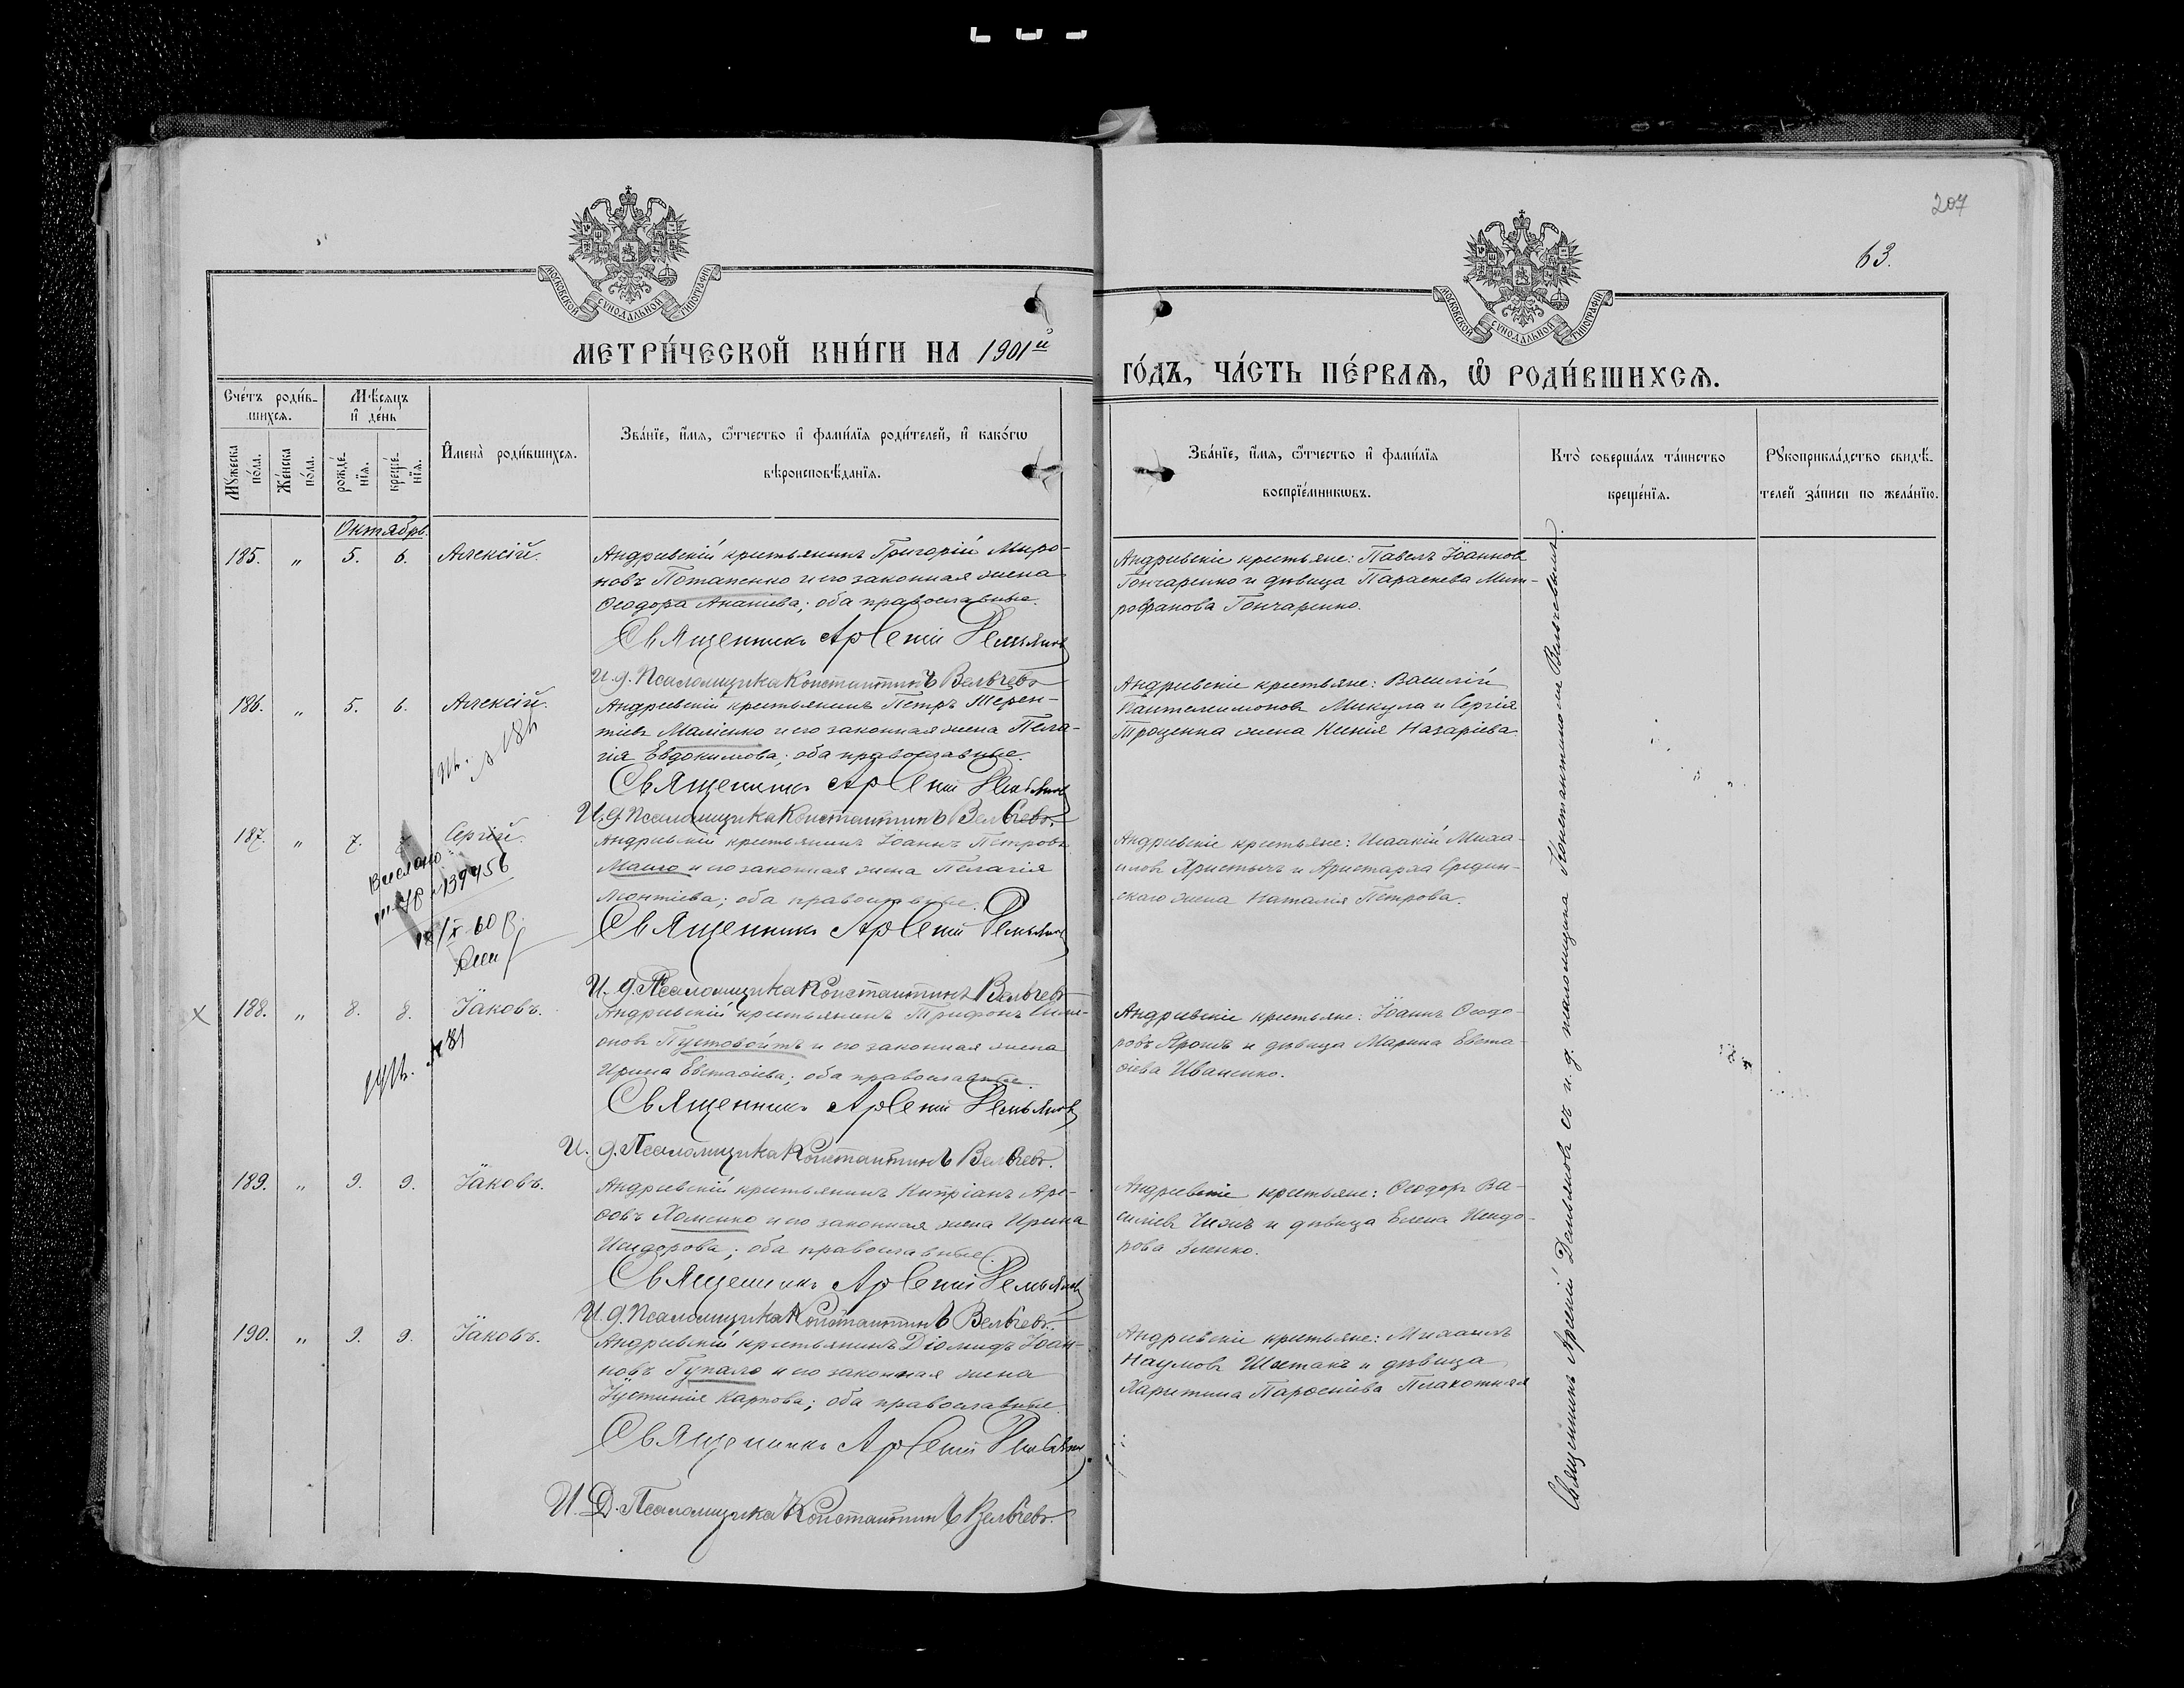 207
63.
МОСКОВСКОЙ СѴНОДАЛЬНОЙ ТИПОГРАФІИ
МОСКОВСКОЙ СѴНОДАЛЬНОЙ ТИПОГРАФІИ
МЕТРИ́ЧЕСКОЙ КНИ́ГИ НА 1901й
ГО́ДЪ, ЧА́СТЬ ПЕ́РВАѦ, Ѽ РОДИ́ВШИХСѦ.
Сче́тъ роди́в-
шихсѧ.
Мѣ́сѧцъ
и де́нь
Мꙋ́жеска по́ла.
Же́нска по́ла.
рожде́-
нїѧ.
креще́-
нїѧ.
Имена̀ роди́вшихсѧ.
Зва́нїе, и́мѧ, ѻ́тчество и фами́лїѧ роди́телей, и како́гѡ
вѣроисповѣ́данїѧ.
Зва́нїе, и́мѧ, ѻ́тчество и фами́лїѧ
воспрїе́мникѡвъ.
Кто̀ соверша́лъ та́инство
креще́нїѧ.
Рꙋкоприкла́дство свидѣ́-
телей за́писи по жела́нїю.
Октябрь.
185. " 5. 6. Алексій.
Андреевскій крестьянинъ Григорій Миро-
новъ Потапенко и его законная жена
Ѳеодора Ананіева; оба православные.
Священникъ Арсеній Демьянов
И. д. Псаломщика Константинъ Вельчевъ
Андреевскіе крестьяне: Павелъ Іоаннов
Гончаренко и дѣвица Параскева Мит-
рофанова Гончаренко.
186. " 5. 6. Алексій.
Андреевскій крестьянинъ Петръ Терен-
тіев Малѣенко и его законная жена Пела-
гія Евдокимова; оба православные.
Священникъ Арсеній Демьянов
И. д. Псаломщика Константинъ Вельчевъ.
Андреевскіе крестьяне: Василій
Пантелимонов Микула и Сергія
Троценка жена Ксенія Назаріева.
187. " 7. Сергій.
Выслано
139456
60
Андреевскій крестьянинъ Іоаннъ Петровъ
Машло и его законная жена Пелагія
Леонтіева; оба православные.
Священникъ Арсеній Демьянов
И. д. Псаломщика Константинъ Вельчевъ
Андреевскіе крестьяне: Исаакій Миха-
илов Христичъ и Аристарха Средин-
скаго жена Наталія Петрова.
х 188. " 8. 8. Іаковъ.
Андреевскій крестьянинъ Трифонъ Симе-
онов Пустовойтъ и его законная жена
Ирина Евстаѳіева; оба православные.
Священникъ Арсеній Демьянов
И. д. Псаломщика Константинъ Вельчевъ.
Андреевскіе крестьяне: Іоаннъ Ѳеодо-
ровъ Ярошъ и дѣвица Марина Евста-
ѳіева Иваненко.
189. " 9. 9. Іаковъ.
Андреевскій крестьянинъ Кипріанъ Аре-
ѳовъ Хоменко и его законная жена Ирина
Исидорова; оба православные.
Священникъ Арсеній Демьянов
И. д. Псаломщика Константинъ Вельчевъ.
Андреевскіе крестьяне: Ѳеодоръ Ва-
силіев Чижъ и дѣвица Елена Исидо-
рова Зленко.
190. " 9. 9. Іаковъ.
Андреевскій крестьянинъ Діомидъ Іоан-
новъ Гупало и его законная жена
Іустинія Карпова; оба православные
Священникъ Арсеній Демьянов
И. Д. Псаломщика Константинъ Вельчевъ.
Андреевскіе крестьяне: Михаилъ
Наумов Шестакъ и дѣвица
Харитина Пароеніева Плахотная
Священникъ Арсеній Демьянов съ и. д. псаломщика Константиномъ Вельчевымъ.